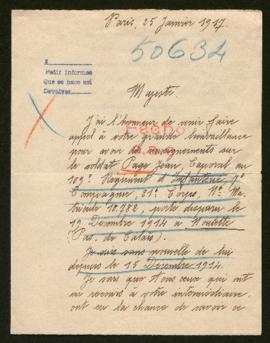 Paris, 25 Janvier 1917.
50634
A
Pedir informes
Que se hace así
Devobrar
Majesté
J'ai l'honneur de venir faire
appel à votre grande bienveillance
pour avoir des renseignements sur
le soldat Page Jean, Caporal au
109e Régiment d'Infanterie 9e
Compagnie, 21e Corps, No Ma-
tricule 10.782, porté disparu le
19 Décembre 1914 à Noulette
(Pas. de Calais).
Je suis sans nouvelle de lui
depuis le 15 Décembre 1914.
Je sais que tous ceux qui ont
eu recours à votre intermédiaire,
ont eu la chance de savoir ce